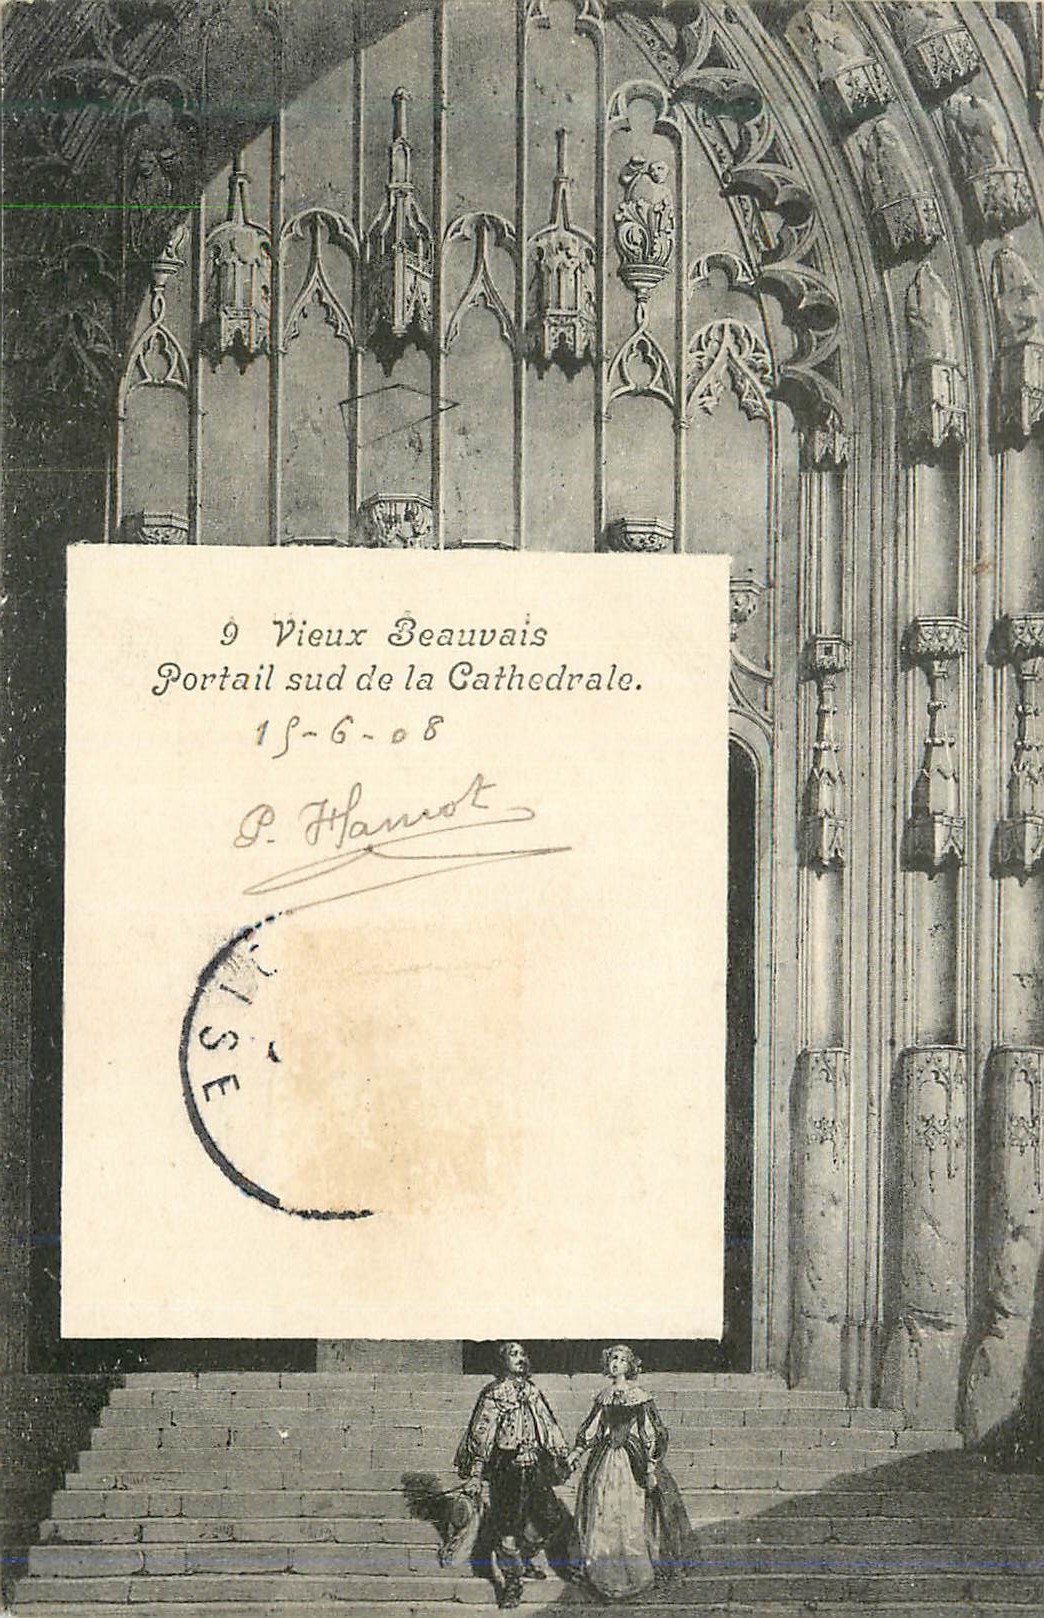 9 Vieux Beauvais
Portail sud de la Cathedrale.
15-6-08
P. Hamot
ISE